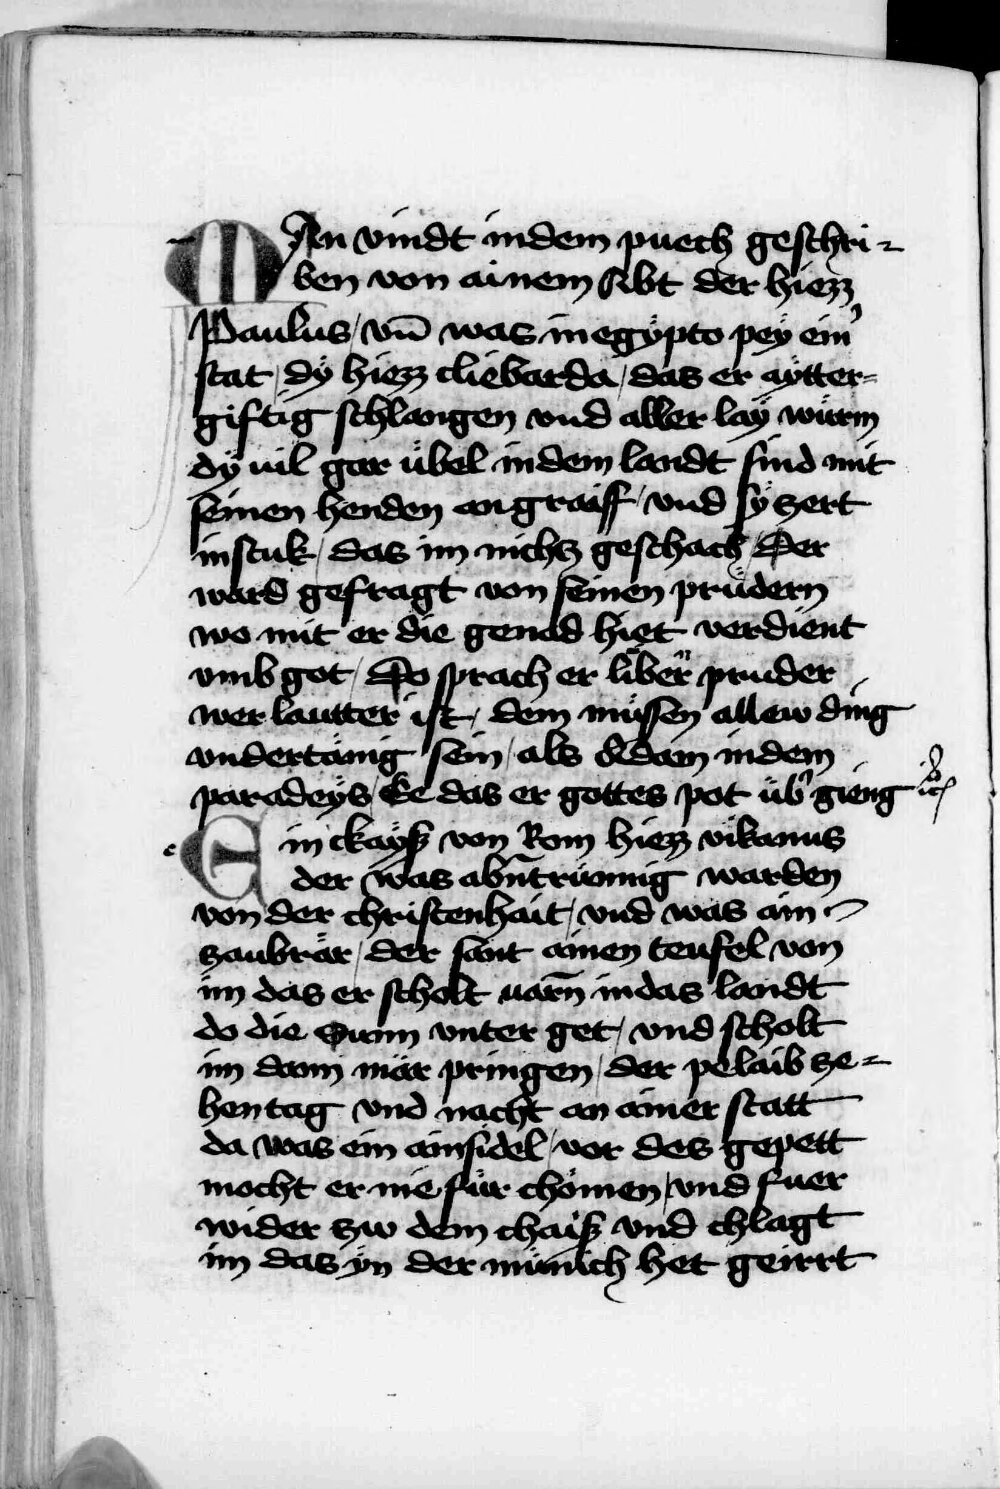 MAn vindt in dem puech geschri-
ben von ainem Abt der hiezz
Paulus / vn̄ was in egÿpto peÿ ein᾽
stat / dÿ hiezz cliebarda / das er aÿtter-
giftig schlangen vnd aller laÿ würm
dÿ uil gar übel in dem landt sind mit
seinen henden angraiff / vnd sÿ zert
in stuk / das im nichtz geschach / Der
ward gefragt von seinen prüdern
wo mit er die genad hiet verdient
vmb got / Do sprach er liber pruder
wer lautter ist / dem müssen allew ding
vndertänig sein / als Adam in dem
paradeÿs / Ee das er gottes pot üb᾽gieng
Ein ckaÿß von Rom hiezz vikanus
der was abn̄trünnig warden
von der christenhait / vnd was ain
zaubrär / der sant ainen teufel von
im das er scholt uarn̄ in das landt
do die Sunn vnter get / vnd scholt
im dann mär pringen / der pelaib ze-
hen tag vnd nacht an ainer statt
da was ein ainsidel / vor des gepett
mocht er nie für chömen / vnd fuer
wider zw dem chaiß vnd chlagt
im das ÿn der münich het geirrt